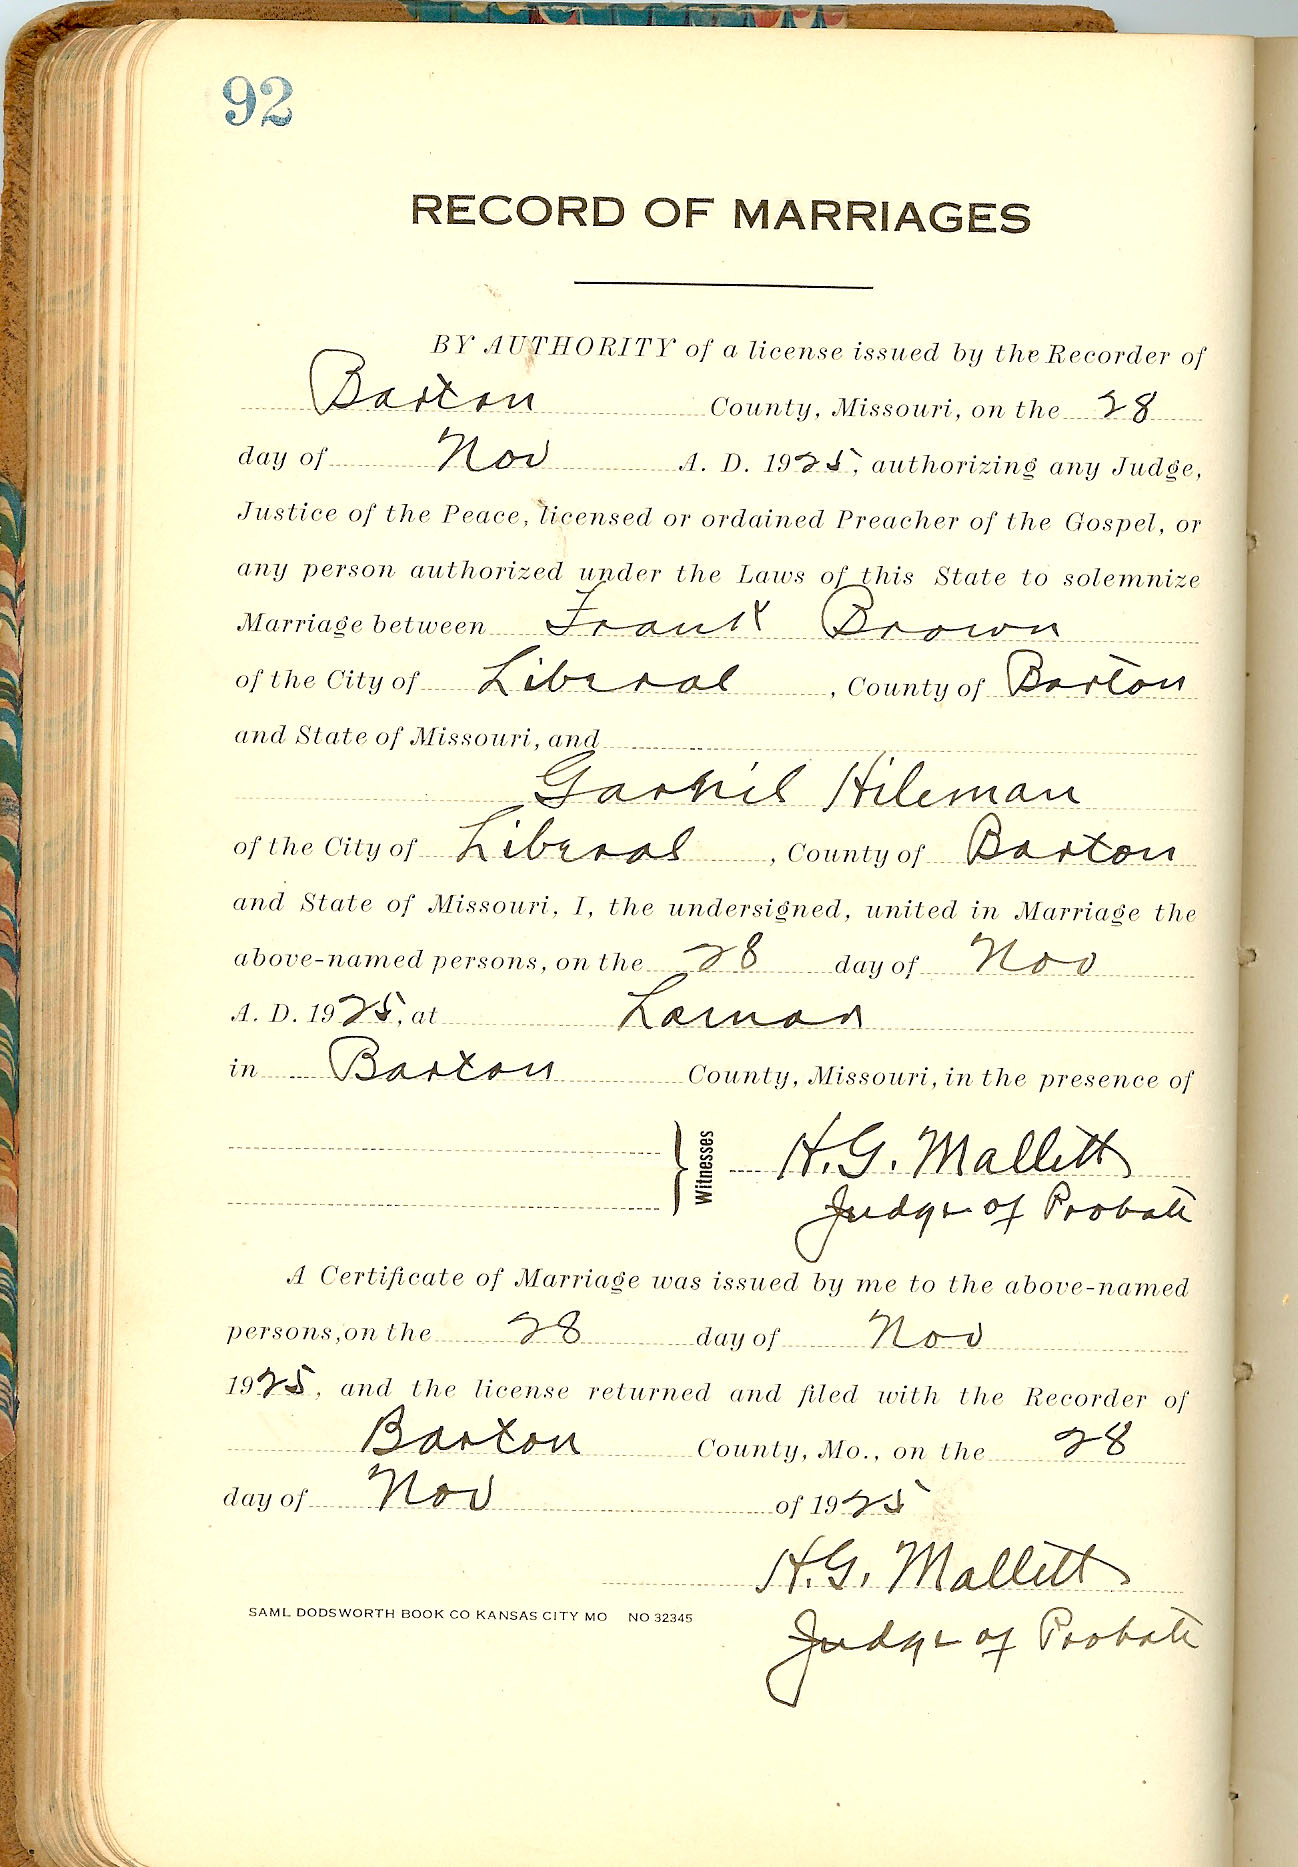 92
RECORD OF MARRIAGES
BY AUTHORITY of a license issued by the Recorder of
Barton County, Missouri, on the 28
day of Nov A. D. 1925, authorizing any Judge,
Justice of the Peace, licensed or ordained Preacher of the Gospel, or
any person authorized under the Laws of this State to solemnize
Marriage between Frank Brown
of the City of Liberal, County of Barton
and State of Missouri, and
Hileman
of the City of Liberal, County of Barton
and State of Missouri, I, the undersigned, united in Marriage the
above-named persons, on the 28 day of Nov
A. D. 1925, at Lamar
in Barton County, Missouri, in the presence of
Witnesses H. G. Mallett
Judge of Probate
A Certificate of Marriage was issued by me to the above-named
persons, on the 28 day of Nov
1925, and the license returned and filed with the Recorder of
Barton County, Mo., on the 28
day of Nov of 1925
H. G. Mallett
SAML DODSWORTH BOOK CO KANSAS CITY MO NO 32345
Judge of Probate